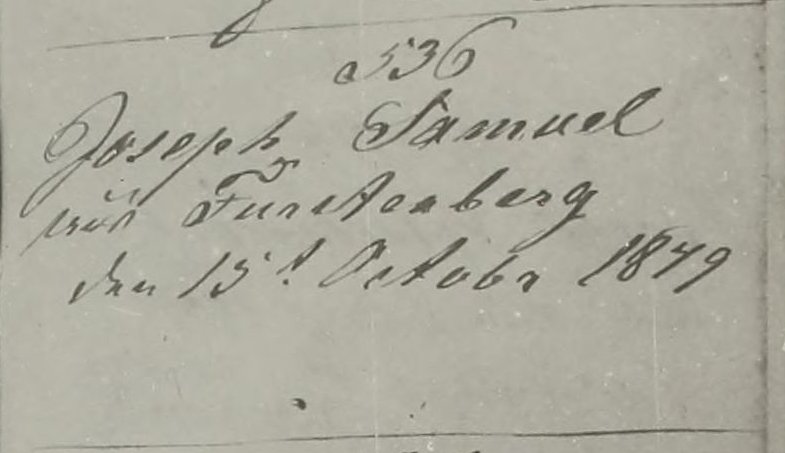 536
Joseph Samuel
aus Fürstenberg
den 15t Octobr 1879